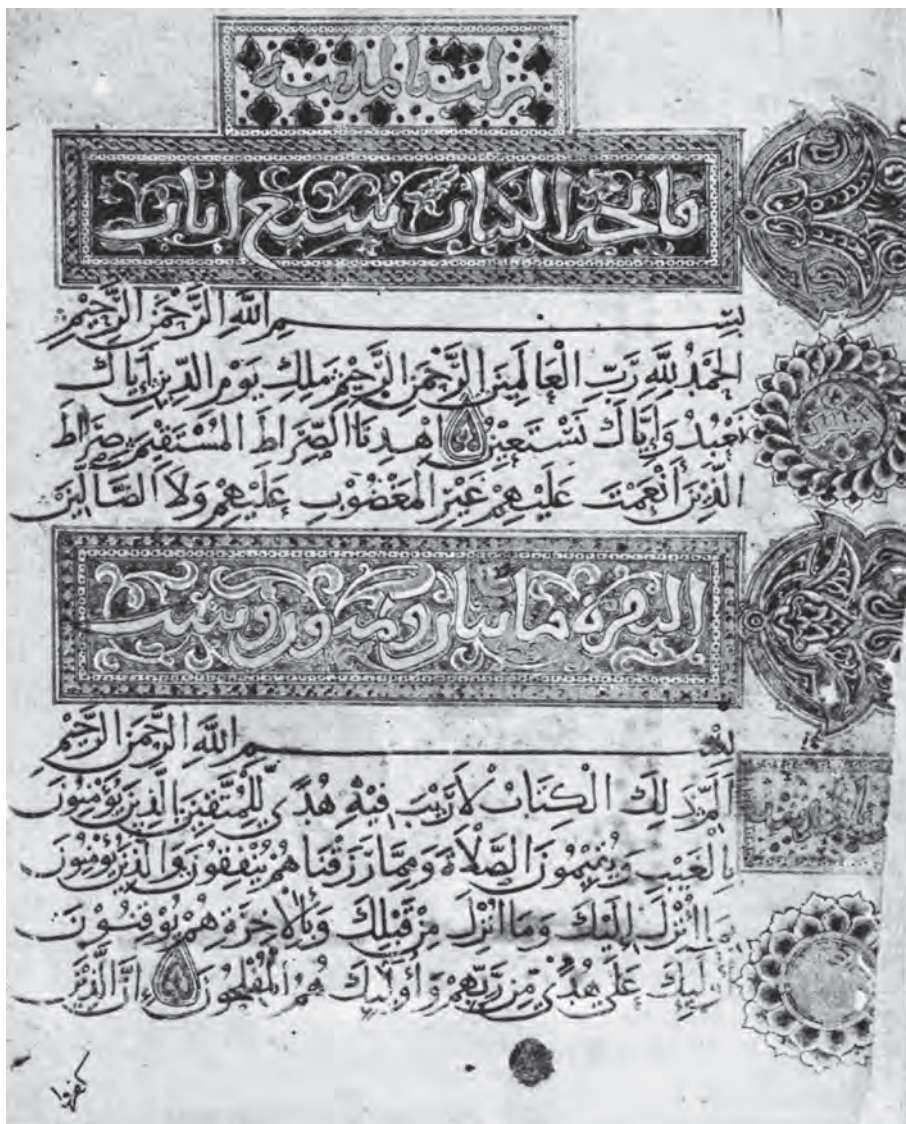 نزلت بالمدينة
فاتحة الكتاب سبع ايات
بِسْمِ اللَّهِ الرَّحْمَنِ الرَّحِيْمِ
الْحَمْدُ لِلَّهِ رَبِّ الْعَالَمِيْنَ الرَّحْمَنِ الرَّحِيْمِ مَلِكِ يَوْمِ الدِّيْنِ إِيَّاكَ
نَعْبُدُ وَإِيَّاكَ نَسْتَعِيْنُ اهْدِنَا الصِّرَاطَ الْمُسْتَقِيْمَ صِرَاطَ
الَّذِيْنَ أَنْعَمْتَ عَلَيْهِمْ غَيْرِ الْمَغْضُوْبِ عَلَيْهِمْ وَلَا الضَّالِّيْنَ
البقرة مائتان وثمنون وست
بِسْمِ اللَّهِ الرَّحْمَنِ الرَّحِيْمِ
الَمّ ذَلِكَ الْكِتَابُ لَا رَيْبَ فِيْهِ هُدًى لِّلْمُتَّقِيْنَ الَّذِيْنَ يُؤْمِنُوْنَ
بِالْغَيْبِ وَيُقِيْمُوْنَ الصَّلَاةَ وَمِمَّا رَزَقْنَاهُمْ يُنْفِقُوْنَ وَالَّذِيْنَ يُؤْمِنُوْنَ
بِمَا أُنْزِلَ إِلَيْكَ وَمَا أُنْزِلَ مِنْ قَبْلِكَ وَبِالْآخِرَةِ هُمْ يُوْقِنُوْنَ
أُولَئِكَ عَلَى هُدًى مِّنْ رَبِّهِمْ وَأُولَئِكَ هُمُ الْمُفْلِحُوْنَ إِنَّ الَّذِيْنَ
كفروا